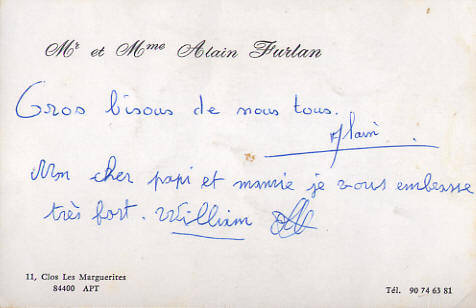 Mr et Mme Alain Furlan
Gros bisous de nous tous.
Alain.
Mon cher papi et mamie je vous embrasse
très fort. William
11, Clos Les Marguerites
84400 APT
Tél. 90 74 63 81